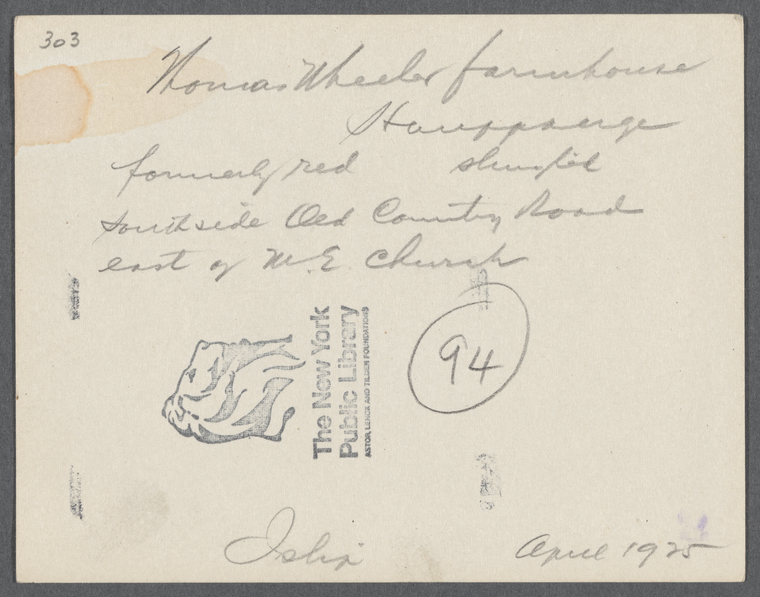 303
Thomas Wheeler farmhouse
Hauppauge
formerly red shingled
south side Old Country Road
east of M.E. Church
94
The New York
Public Library
ASTOR, LENOX AND TILDEN FOUNDATIONS
Islip April 1925